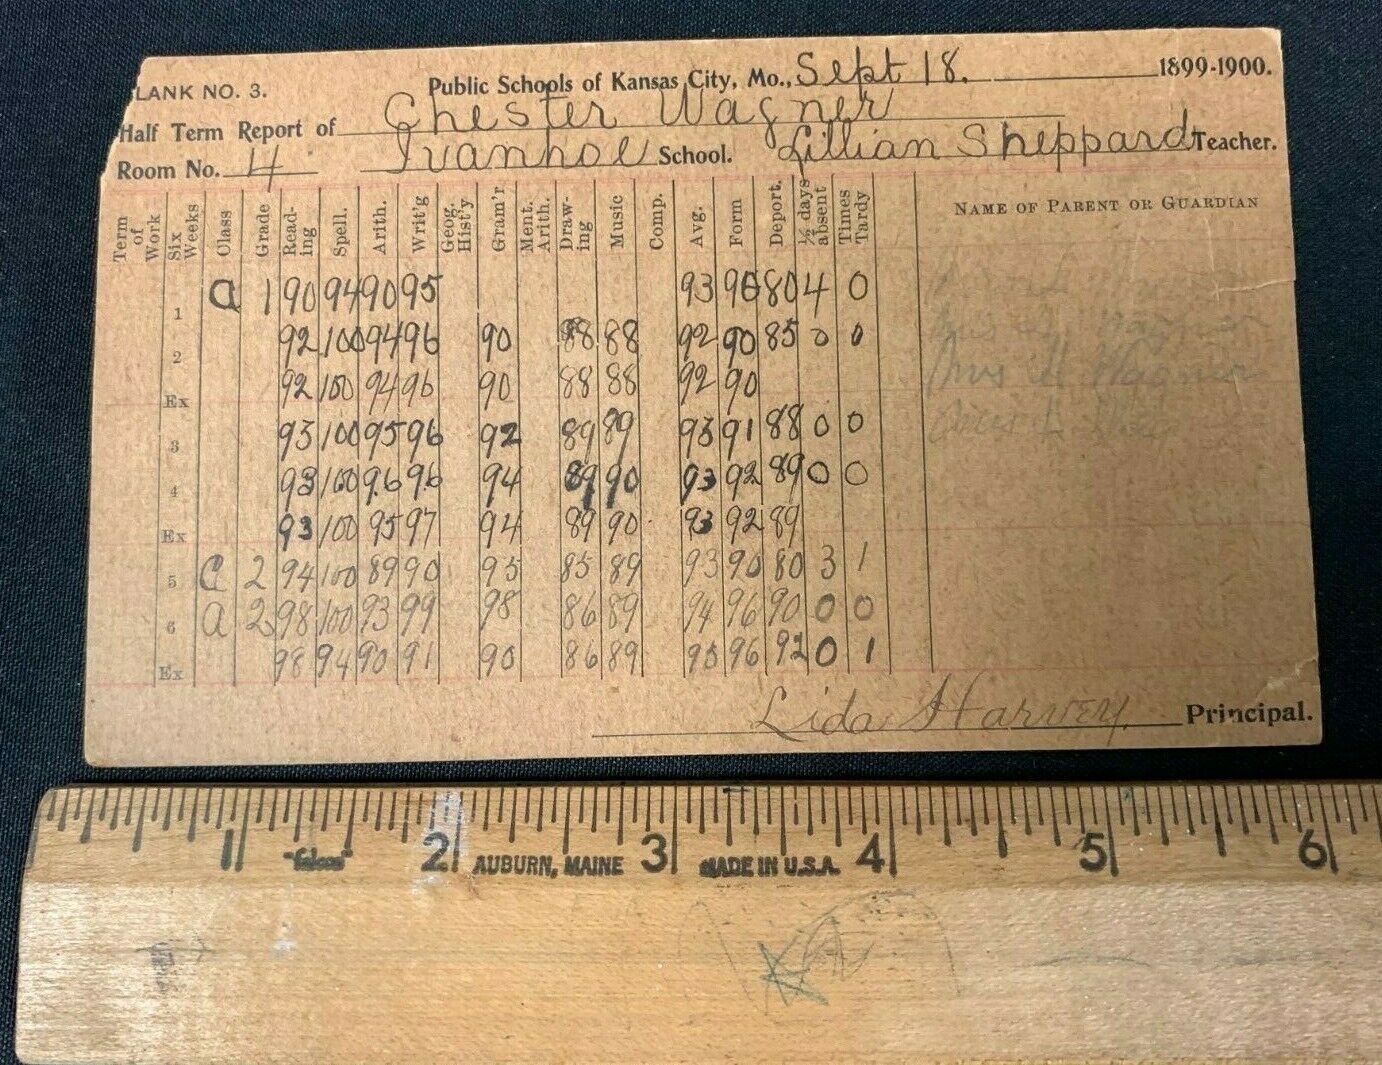 LANK NO. 3.
Public Schools of Kansas City, Mo., Sept 18. 1899-1900.
Half Term Report of Chester Wagner
Room No. 4 Ivanhoe School. Lillian Sheppard Teacher.
Term of Work Six Weeks Class Grade Read-ing Spell. Arith. Writ'g Geog. Hist'y Gram'r Ment. Arith. Draw-ing Music Comp. Avg. Form Deport. ½ days absent Times Tardy NAME OF PARENT OR GUARDIAN
1 a 1 90 94 90 95 93 90 80 4 0
2 92 100 94 96 90 88 88 92 90 85 0 0
Ex 92 100 94 96 90 88 88 92 90 Mrs H Wagner
3 93 100 95 96 92 89 89 93 91 88 0 0
4 93 100 96 96 94 89 90 93 92 89 0 0
Ex 93 100 95 97 94 89 90 93 92 89
5 C 2 94 100 89 90 95 85 89 93 90 80 3 1
6 a 2 98 100 93 99 98 86 89 94 96 90 0 0
Ex 98 94 90 91 90 86 89 90 96 92 0 1
Lida Harvey. Principal.
1 2 3 4 5 6
AUBURN, MAINE MADE IN U.S.A.